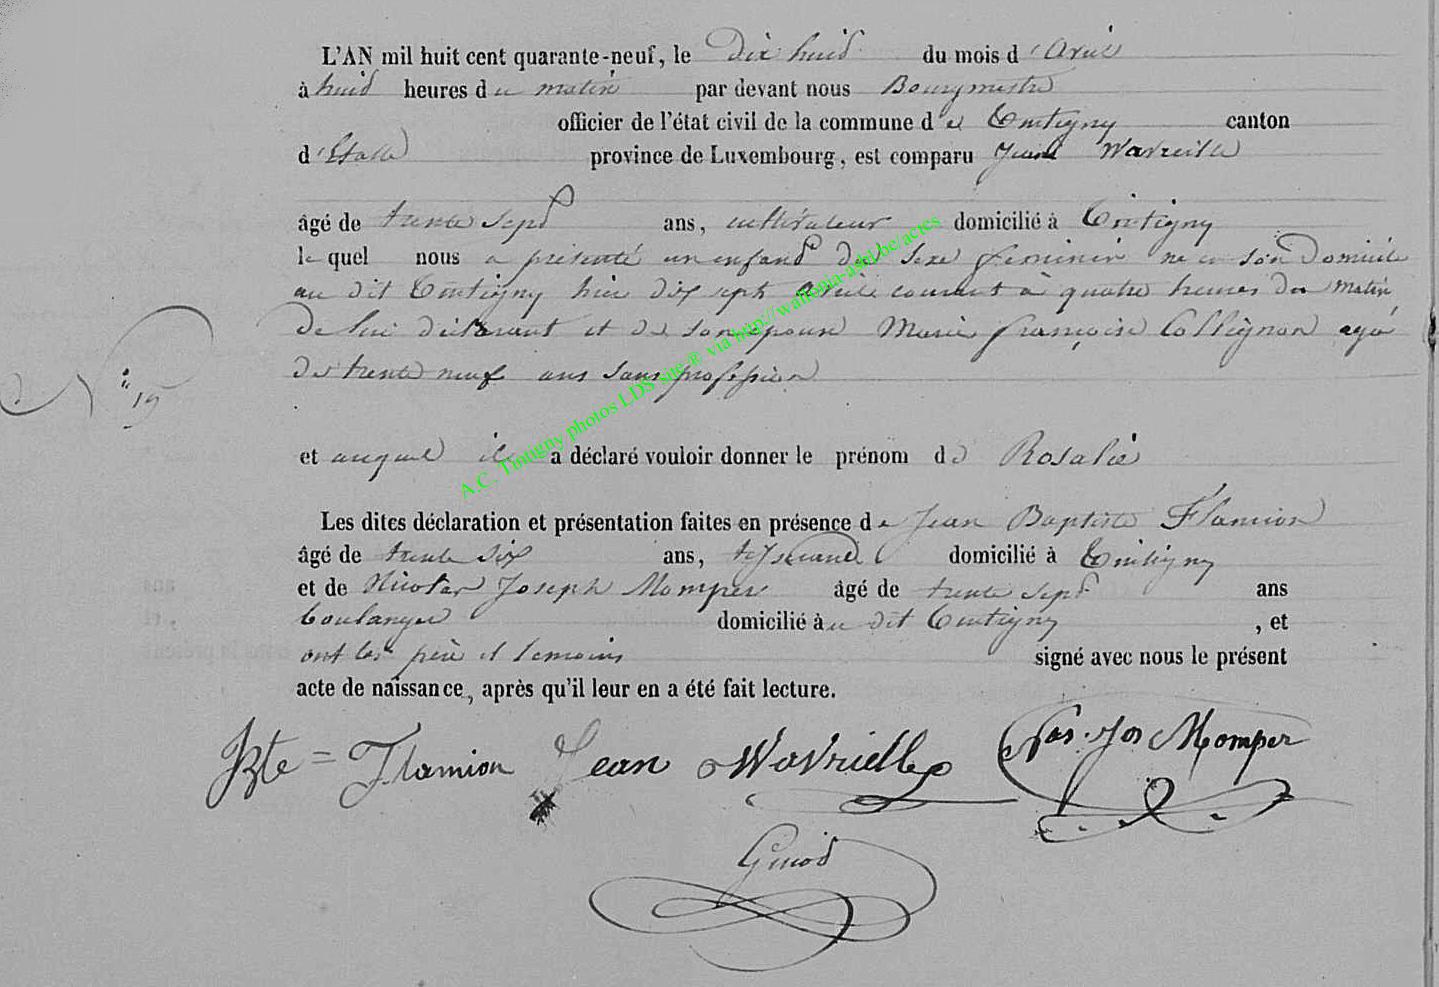 L'AN mil huit cent quarante-neuf, le Dix huid du mois d'Avril
à huid heures du matin par devant nous Bourgmestre
officier de l'état civil de la commune de Tintigny canton
d'Etalle province de Luxembourg, est comparu Jean Wavreille
âgé de trente sept ans, cultivateur domicilié à Tintigny
le quel nous a présenté un enfand du sexe feminin né en son Domicile
au dit Tintigny hier dix sept avril courant à quatre heures du matin
de lui déclarant et de son epouse Marie françoise Collignon agée
de trente neuf ans sans profession
N° 19
et auquel il a déclaré vouloir donner le prénom de Rosalie
Les dites déclaration et présentation faites en présence de Jean Baptiste Flamion
âgé de trente six ans, domicilié à Tintigny
et de Nicolas Joseph Momper âgé de trente sept ans
boulanger domicilié à au dit Tintigny, et
ont les père et temoins signé avec nous le présent
acte de naissance, après qu'il leur en a été fait lecture.
JBte = Flamion Jean WaVrielle Nas. Jos Momper
A.C. Tintigny photos LDS site ® via http://wallonia-asbl.be/actes